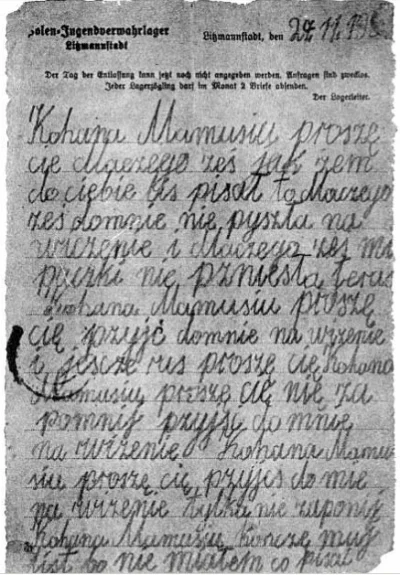 Polen-Jugendverwahrlager
Litzmannstadt
Litzmannstadt, den
Der Tag der Entlassung kann jetzt noch nicht angegeben werden. Anfragen sind zwecklos.
Jeder Lagerzögling darf im Monat 2 Briefe absenden.
Der Lagerleiter.
Kohana Mamusiu proszę
cię dlaczego żéś jak żem
do ciebie lis pisał to dlaczego
żeś domnie nie pyszła na
wizenie i dlaczego żeś mi
paczki nie pzniesła teras
Kohana Mamusiu proszę
cię pzyjć domnie na wizenie
i jescze rus proszę cię Kohana
Mamusiu proszę cię nie za
pomnij pzyjść do mnie
na wizenie Kohana Mamu
siu proszę cię pzyjćs do mie
na wizenie tylko nie zapomij
Kohana Mamusiu kończę muj
list bo nie miałem co pisać